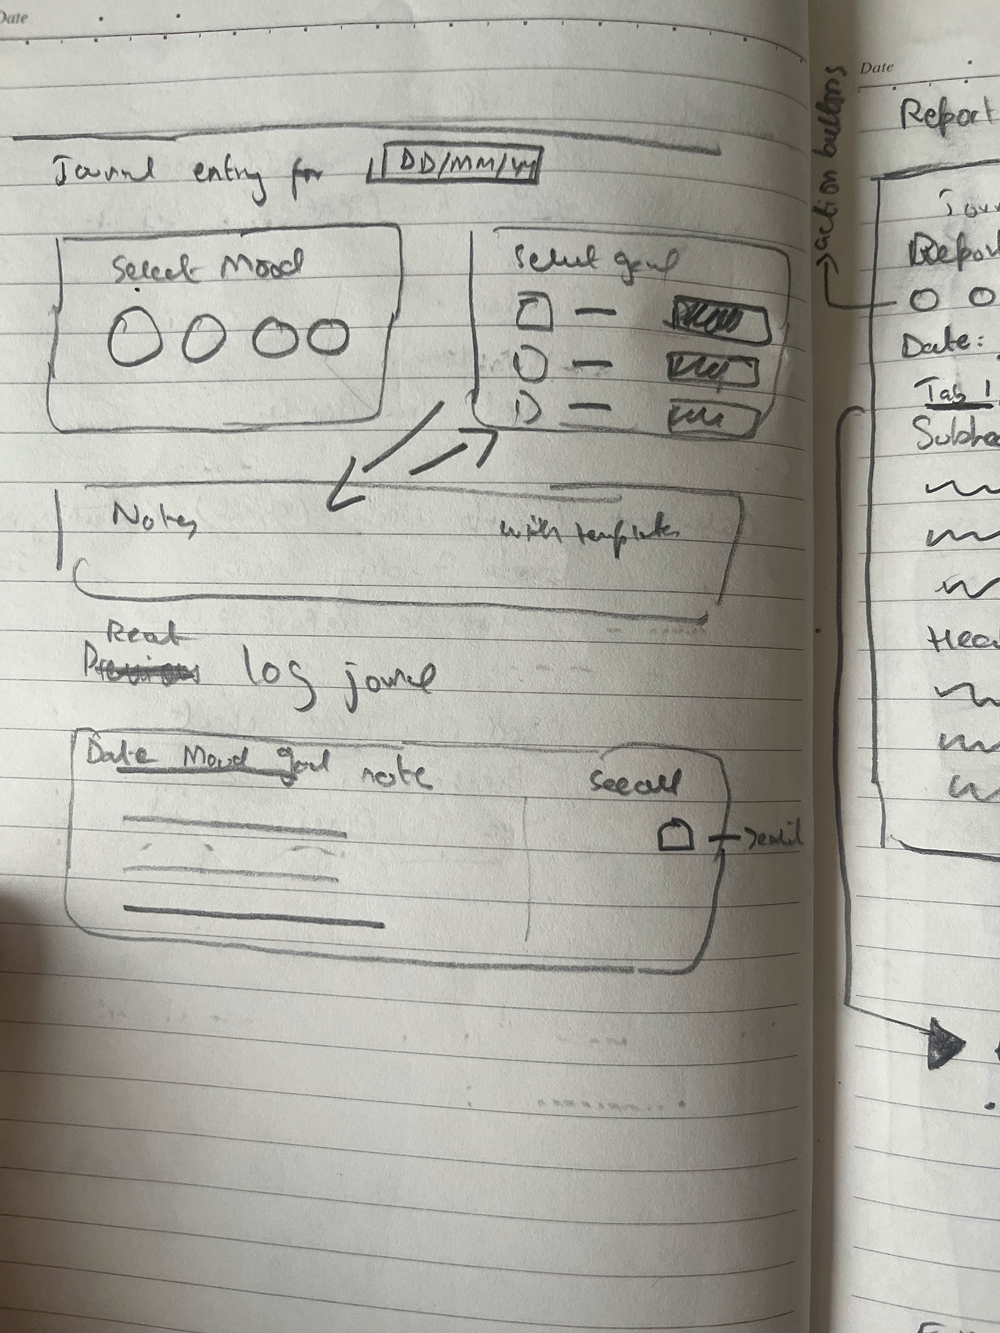 Date
Journal entry for DD/MM/YY
Select Mood
Select goal
Notes
with templates
Previous log journal
Date Mood goal note
See all
action buttons
Date
Report
Jour
Report
Date:
Tab 1
Subhea
Hea